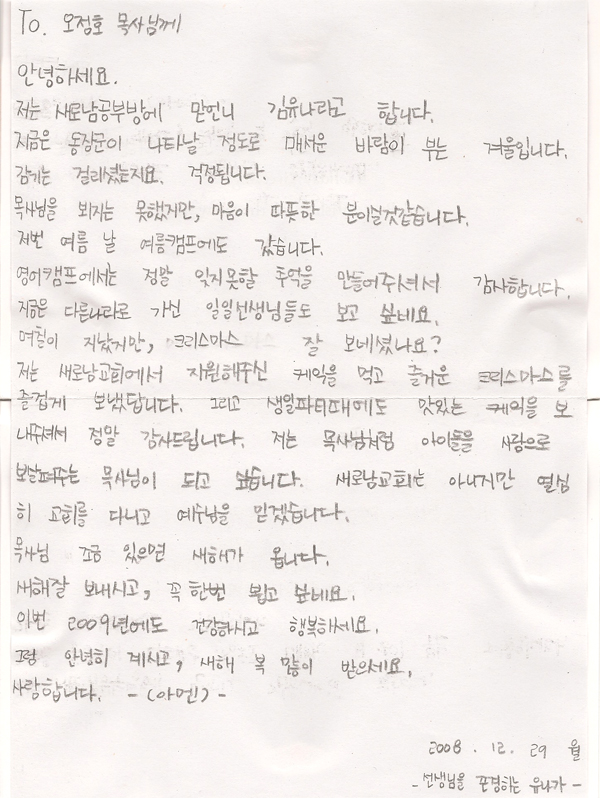 To. 오정호 목사님께
안녕하세요.
저는 새로남공부방에 맏언니 김유나라고 합니다.
지금은 동장군이 나타날 정도로 매서운 바람이 부는 겨울입니다.
감기는 걸리셨는지요. 걱정됩니다.
목사님을 뵈지는 못했지만, 마음이 따뜻한 분이실것같습니다.
저번 여름 날 여름캠프에도 갔습니다.
영어캠프에서는 정말 잊지못할 추억을 만들어주셔서 감사합니다.
지금은 다른나라로 가신 일일선생님들도 보고 싶네요.
며칠이 지났지만, 크리스마스 잘 보네셨나요?
저는 새로남교회에서 지원해주신 케익을 먹고 즐거운 크리스마스를
즐겁게 보냈답니다. 그리고 생일파티때에도 맛있는 케익을 보
내주셔서 정말 감사드립니다. 저는 목사님처럼 아이들을 사랑으로
보살펴주는 목사님이 되고 싶습니다. 새로남교회는 아니지만 열심
히 교회를 다니고 예수님을 믿겠습니다.
목사님 조금 있으면 새해가 옵니다.
새해잘 보내시고, 꼭 한번 뵙고 싶네요.
이번 2009년에도 건강하시고 행복하세요.
그럼 안녕히 계시고, 새해 복 많이 받으세요.
사랑합니다. -(아멘)-
2008. 12. 29 월
-선생님을 존경하는 유나가-